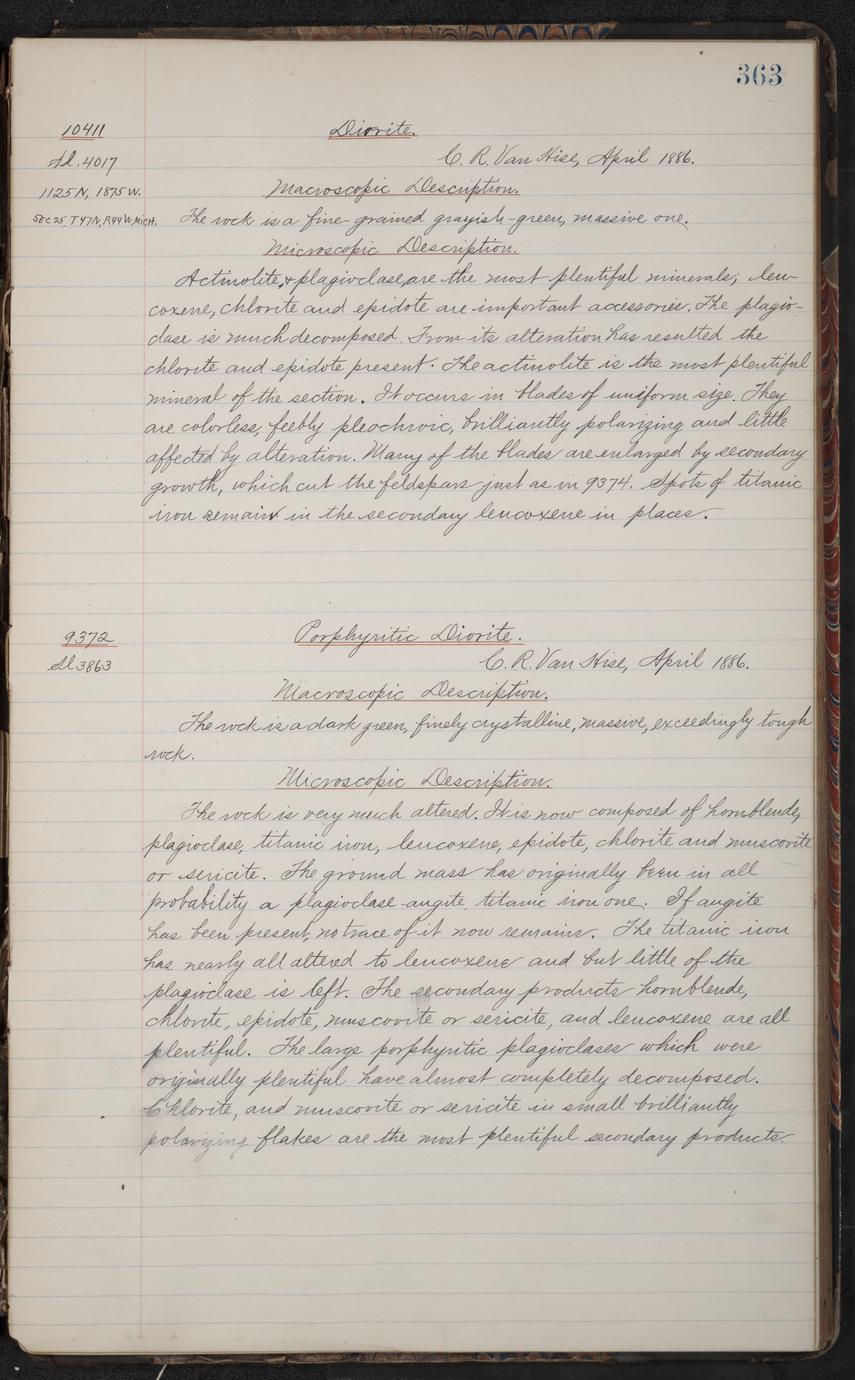 363
10411
Diorite.
Sl. 4017
C. R. Van Hise, April 1886.
1125 N, 1875 W.
Macroscopic Description.
SEC 25, T47N, R44W, MICH.
The rock is a fine-grained grayish-green, massive one.
Microscopic Description.
Actinolite, & plagioclase, are the most plentiful minerals; leu-
coxene, chlorite and epidote are important accessories. The plagio-
clase is much decomposed. From its alteration has resulted the
chlorite and epidote present. The actinolite is the most plentiful
mineral of the section. It occurs in blades of uniform size. They
are colorless, feebly pleochroic, brilliantly polarizing and little
affected by alteration. Many of the blades are enlarged by secondary
growth, which cut the feldspars just as in 9374. Spots of titanic
iron remain in the secondary leucoxene in places.
9372
Porphyritic Diorite.
Sl 3863
C. R. Van Hise, April 1886.
Macroscopic Description.
The rock is a dark green, finely crystalline, massive, exceedingly tough
rock.
Microscopic Description.
The rock is very much altered. It is now composed of hornblende,
plagioclase, titanic iron, leucoxene, epidote, chlorite and muscovite
or sericite. The ground mass has originally been in all
probability a plagioclase-augite, titanic iron one. If augite
has been present, no trace of it now remains. The titanic iron
has nearly all altered to leucoxene and but little of the
plagioclase is left. The secondary products hornblende,
chlorite, epidote, muscovite or sericite, and leucoxene are all
plentiful. The large porphyritic plagioclases which were
originally plentiful have almost completely decomposed.
Chlorite, and muscovite or sericite in small brilliantly
polarizing flakes are the most plentiful secondary products.